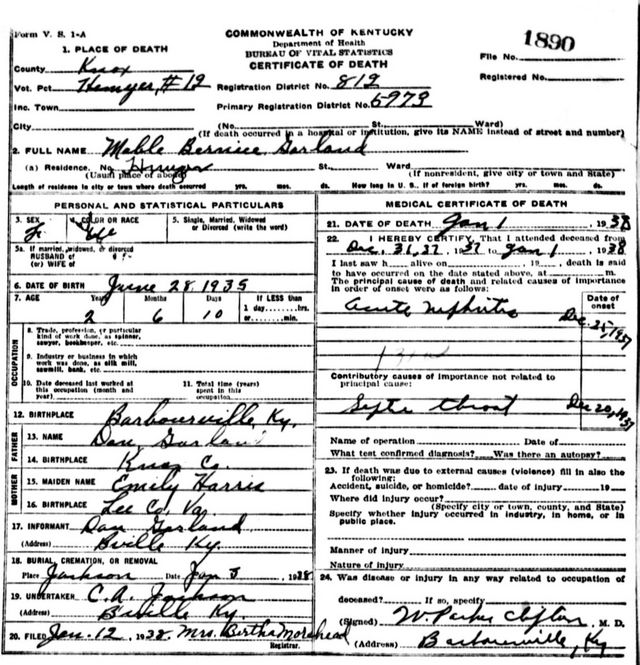 Form V. S. 1-A
COMMONWEALTH OF KENTUCKY
Department of Health
BUREAU OF VITAL STATISTICS
CERTIFICATE OF DEATH
File No. 1890
Registered No.
1. PLACE OF DEATH
County Knox
Vot. Pct #12 Registration District No. 819
Inc. Town Primary Registration District No. 5979
City (No. St. Ward)
(If death occurred in a hospital or institution, give its NAME instead of street and number)
2. FULL NAME Mable Bernice Garland
(a) Residence, No. St., Ward
(Usual place of abode) (If nonresident, give city or town and State)
Length of residence in city or town where death occurred yrs. mos. ds. How long in U. S., if of foreign birth? yrs. mos. ds.
PERSONAL AND STATISTICAL PARTICULARS
3. SEX 4. COLOR OR RACE 5. Single, Married, Widowed
or Divorced (write the word)
5a. If married, widowed, or divorced
HUSBAND of
(or) WIFE of
6. DATE OF BIRTH June 28 1935
7. AGE Years Months Days If LESS than
2 6 10 1 day hrs.
or min.
OCCUPATION
8. Trade, profession, or particular
kind of work done, as spinner,
sawyer, bookkeeper, etc.
9. Industry or business in which
work was done, as silk mill,
sawmill, bank, etc.
10. Date deceased last worked at
this occupation (month and
year)
11. Total time (years)
spent in this
occupation
12. BIRTHPLACE Barbourville, Ky.
FATHER
13. NAME Dan Garland
14. BIRTHPLACE Knox Co.
MOTHER
15. MAIDEN NAME Emily Harris
16. BIRTHPLACE Lee Co. Va.
17. INFORMANT Dan Garland
(Address) Bville Ky.
18. BURIAL, CREMATION, OR REMOVAL
Place Jackson Date Jan 3, 1938
19. UNDERTAKER C.A. Jackson
(Address) B'ville Ky.
20. FILED Jan. 12, 1938. Mrs. Bertha Morehead
Registrar.
MEDICAL CERTIFICATE OF DEATH
21. DATE OF DEATH Jan 1, 1938
22. I HEREBY CERTIFY, That I attended deceased from
Dec. 31, 37, 1937 to Jan 1, 1938
I last saw h alive on , 19 , death is said
to have occurred on the date stated above, at m.
The principal cause of death and related causes of importance
in order of onset were as follows:
Date of
onset
Acute Nephritis Dec. 25, 1937
Contributory causes of importance not related to
principal cause:
Septic throat Dec 20, 1937
Name of operation Date of
What test confirmed diagnosis? Was there an autopsy?
23. If death was due to external causes (violence) fill in also the
following:
Accident, suicide, or homicide? date of injury 19
Where did injury occur?
(Specify city or town, county, and State)
Specify whether injury occurred in industry, in home, or in
public place.
Manner of injury
Nature of injury
24. Was disease or injury in any way related to occupation of
deceased? If so, specify
(Signed) W. Parker Clifton, M. D.
(Address) Barbourville, Ky